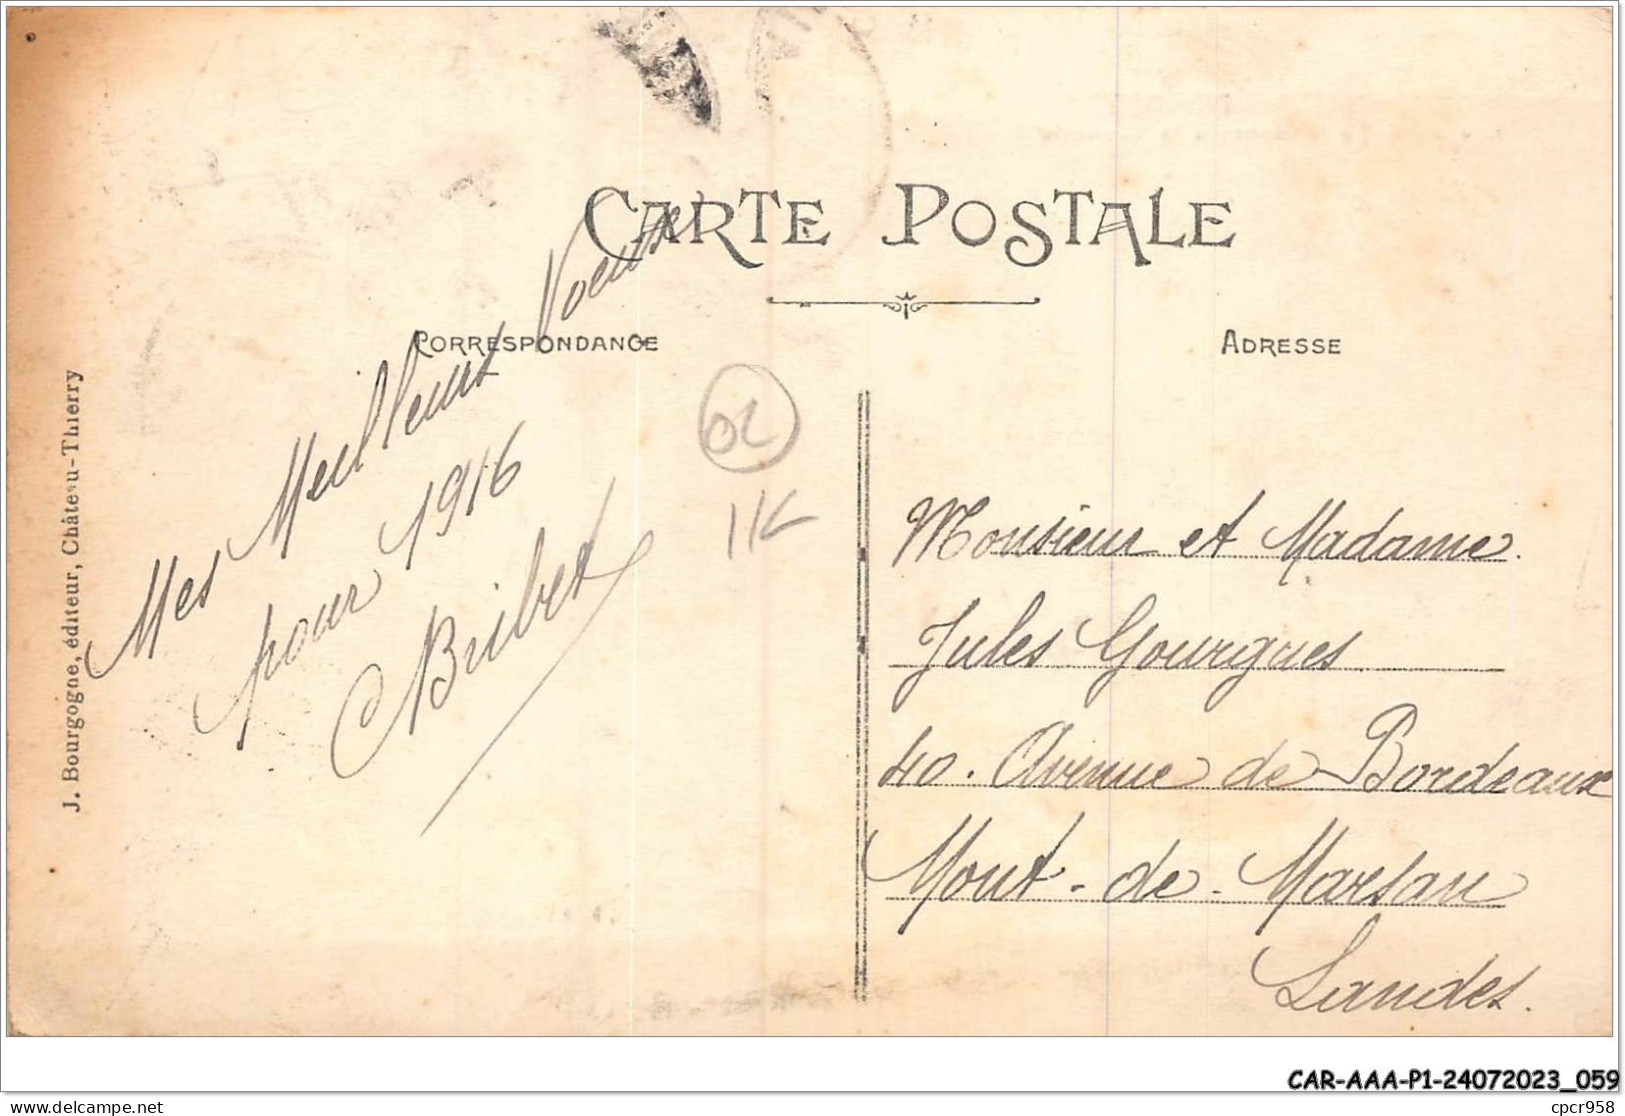 CARTE POSTALE
CORRESPONDANCE
ADRESSE
J. Bourgogne, éditeur, Château-Thierry
Mes Meilleurs Voeux
pour 1916
Bribet
02
11K
Monsieur et Madame
Jules Gourgues
40. Avenue de Bordeaux
Mont-de-Marsan
Landes.
CAR-AAA-P1-24072023_059
delcampe.net
cpcr958